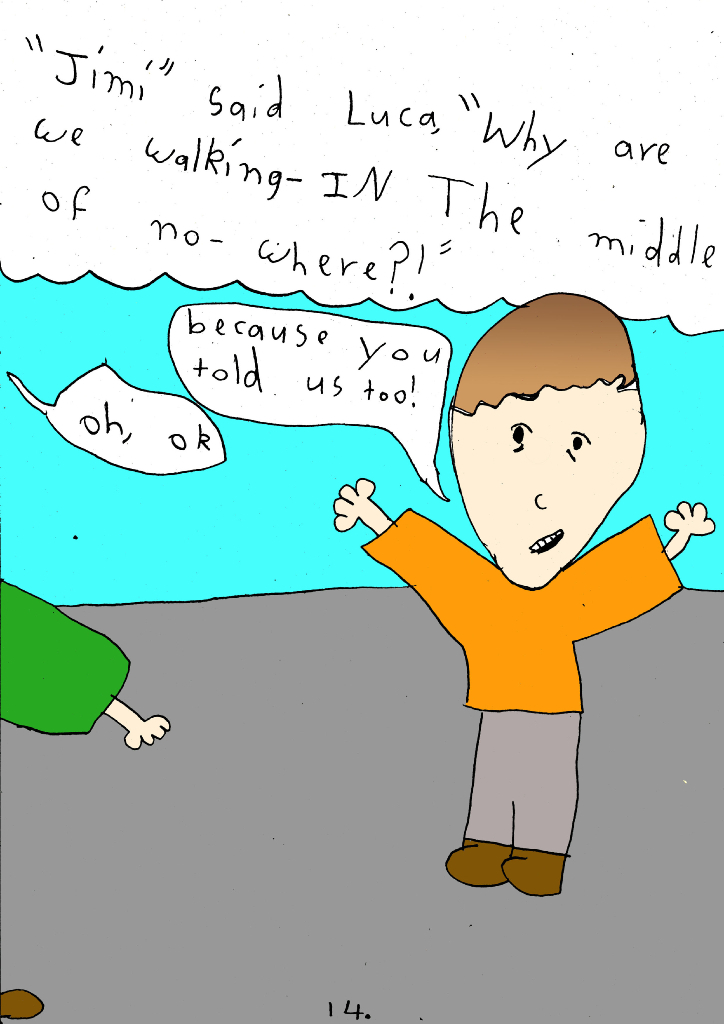 "Jimi" said Luca, "Why are
we walking-IN The middle
of no-where?!"
because you
told us too!
oh, ok
14.